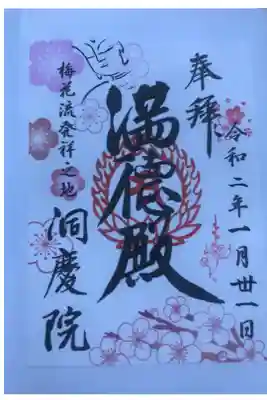 奉拝
令和二年一月丗一日
満徳殿
梅花流発祥之地
洞慶院